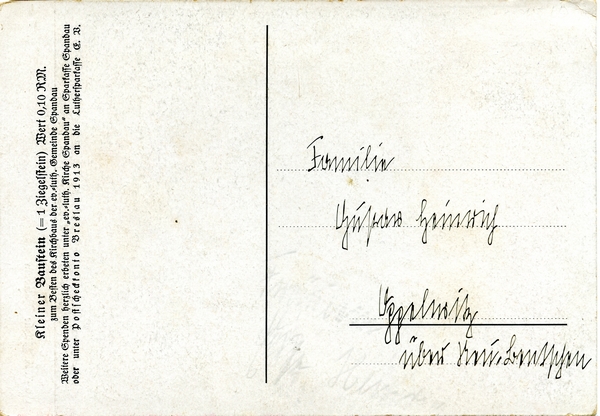 Kleiner Baustein (= 1 Ziegelstein) Wert 0,10 RM.
zum Besten des Kirchbaus der ev.-luth. Gemeinde Spandau
Weitere Spenden herzlich erbeten unter „ev.-luth. Kirche Spandau“ an Sparkasse Spandau
oder unter Postscheckkonto Breslau 1913 an die Luthersparkasse E. V.
Familie
Gustav Heinrich
über Neu-Bentschen